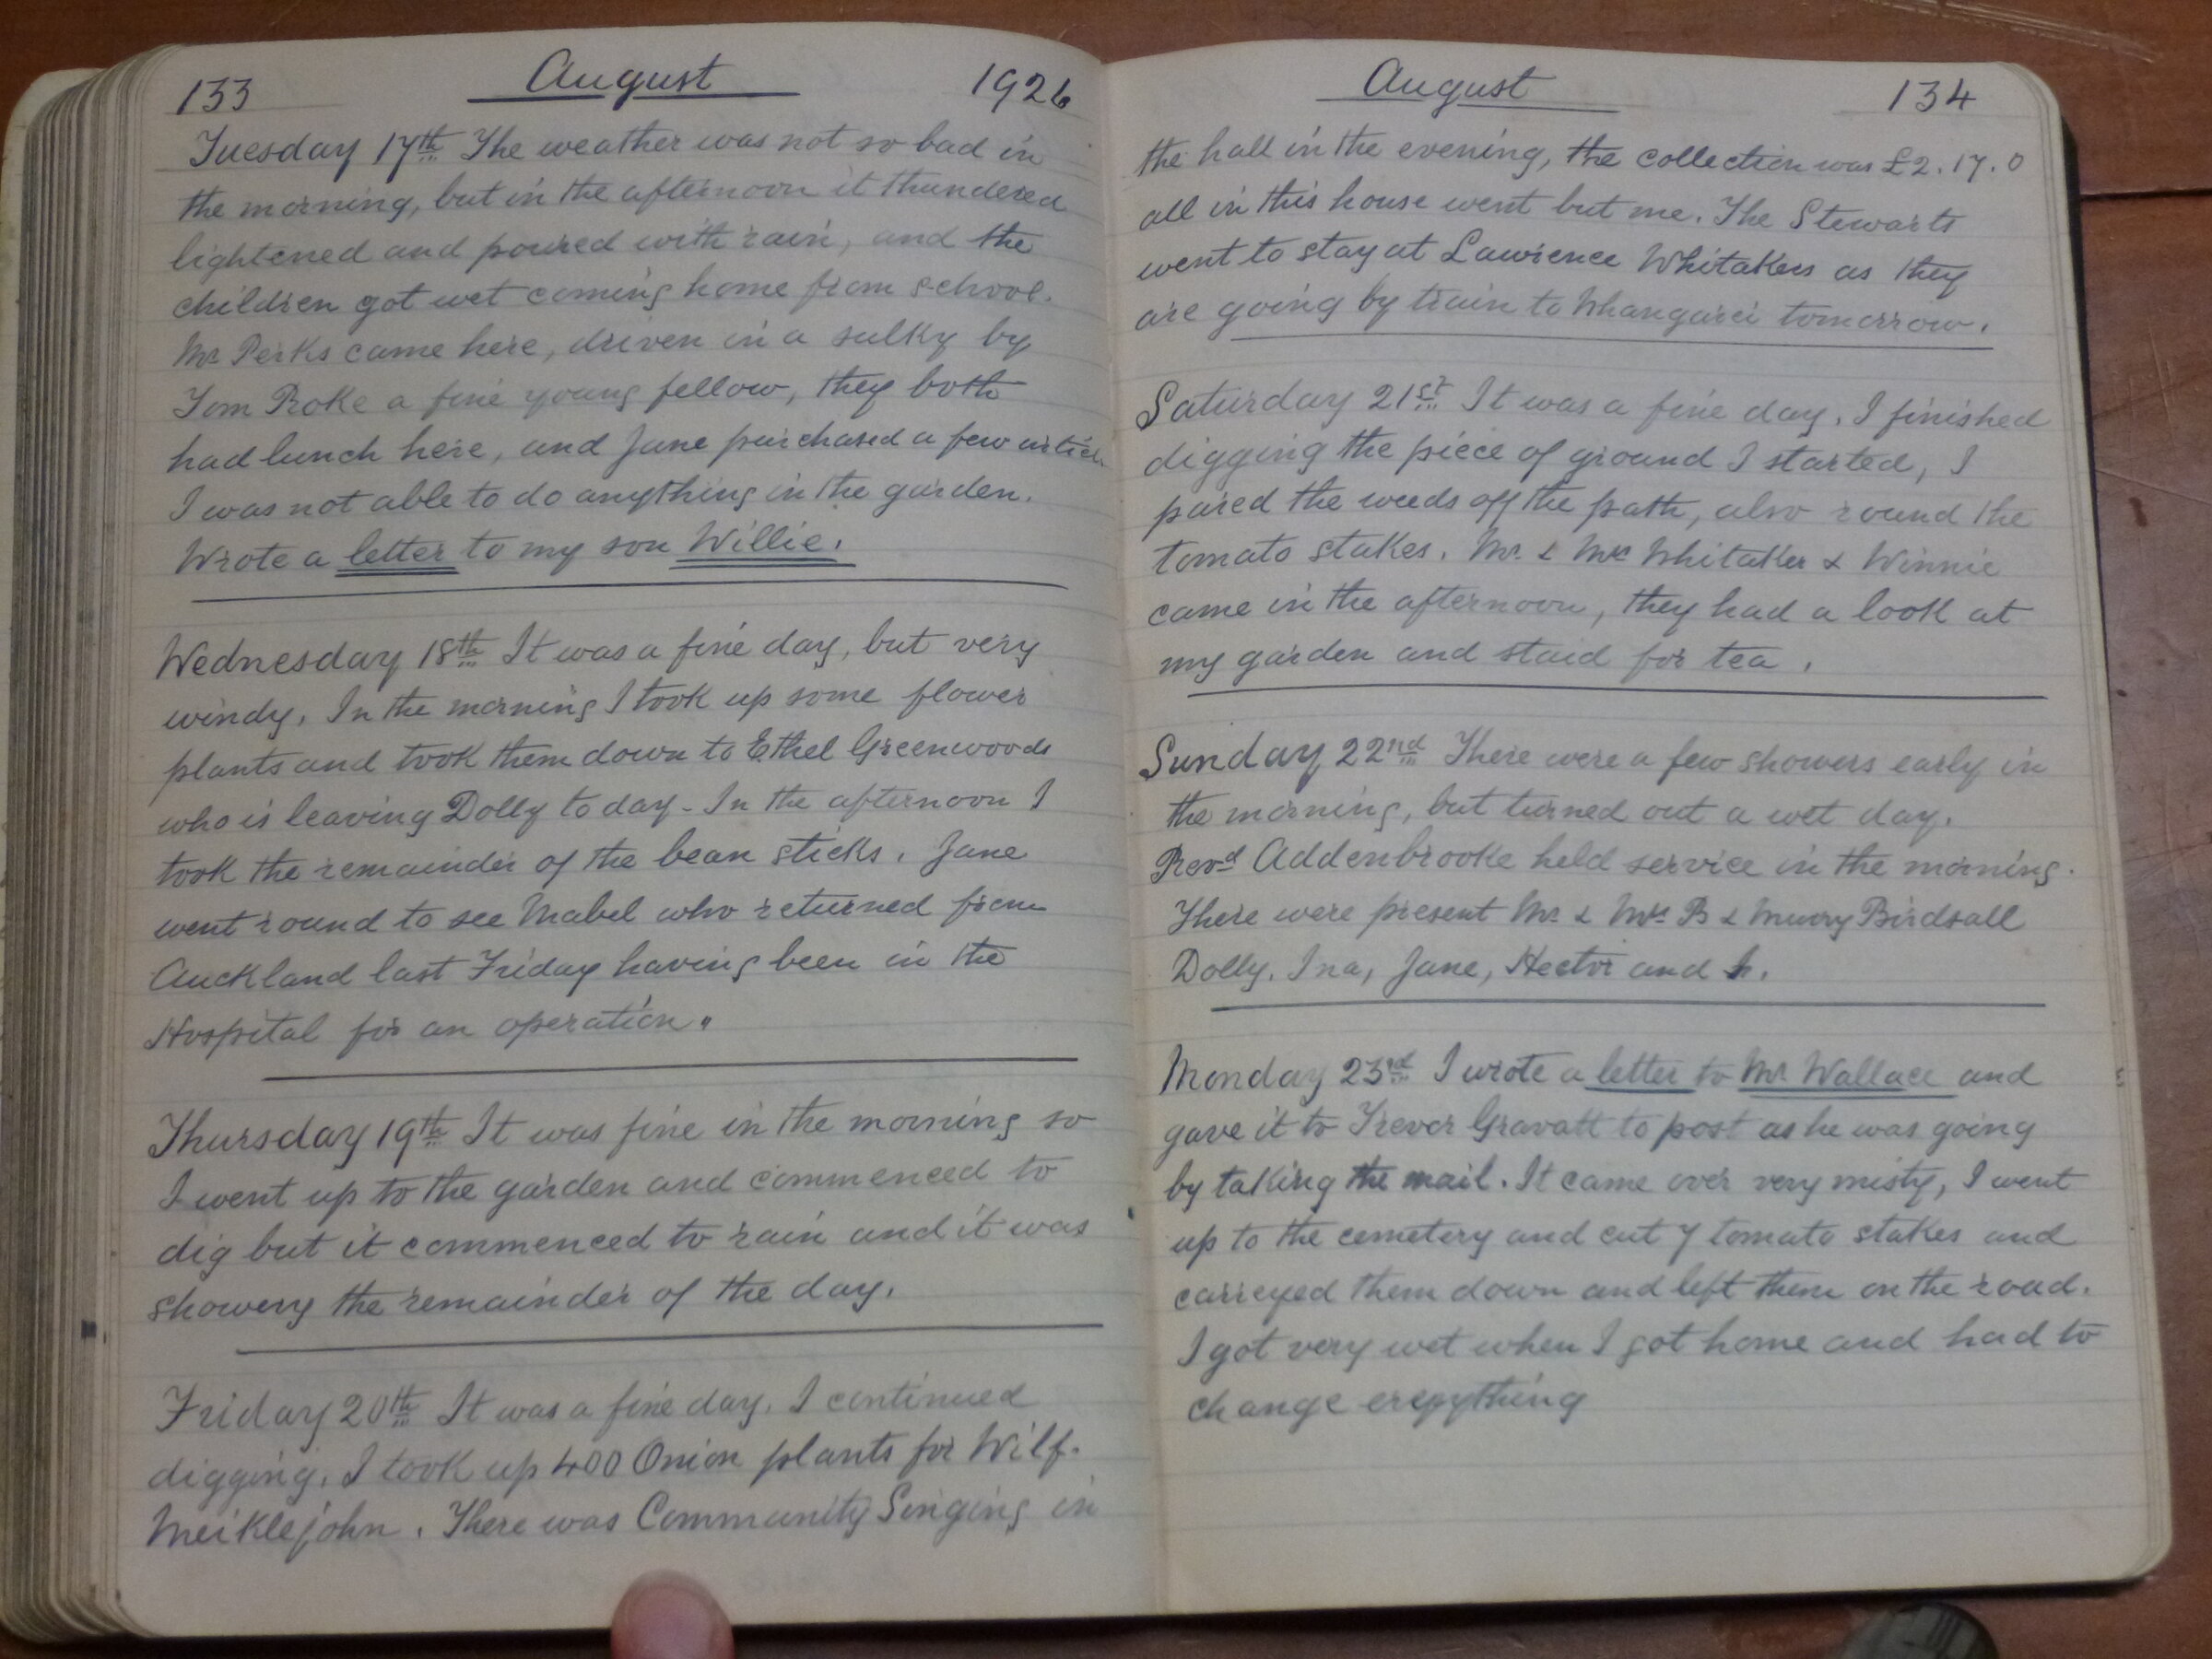 133 August 1926
Tuesday 17th The weather was not so bad in
the morning, but in the afternoon it thundered
lightened and poured with rain, and the
children got wet coming home from school.
Mr Perks came here, driven in a sulky by
Tom Roke a fine young fellow, they both
had lunch here, and Jane purchased a few
I was not able to do anything in the garden.
Wrote a letter to my son Willie.
Wednesday 18th It was a fine day, but very
windy. In the morning I took up some flower
plants and took them down to Ethel Greenwoods
who is leaving Dolly to day - In the afternoon I
took the remainder of the bean sticks. Jane
went round to see Mabel who returned from
Auckland last Friday having been in the
Hospital for an operation.
Thursday 19th It was fine in the morning so
I went up to the garden and commenced to
dig but it commenced to rain and it was
showery the remainder of the day.
Friday 20th It was a fine day. I continued
digging. I took up 400 Onion plants for Wilf.
Meiklejohn. There was Community Singing in
August 134
the hall in the evening, the collection was £2.17.0
all in this house went but me. The Stewarts
went to stay at Lawrence Whitakers as they
are going by train to Whangarei tomorrow.
Saturday 21st It was a fine day. I finished
digging the piece of ground I started, I
pared the weeds off the path, also round the
tomato stakes. Mr & Mrs Whitaker & Winnie
came in the afternoon, they had a look at
my garden and staid for tea.
Sunday 22nd There were a few showers early in
the morning, but turned out a wet day.
Revd Addenbrooke held service in the morning.
There were present Mr & Mrs B & Murry Birdsall
Dolly. Ina, Jane, Hector and I.
Monday 23rd I wrote a letter to Mr Wallace and
gave it to Trever Gravatt to post as he was going
by taking the mail. It came over very misty, I went
up to the cemetery and cut 7 tomato stakes and
carreyed them down and left them on the road.
I got very wet when I got home and had to
change erepything